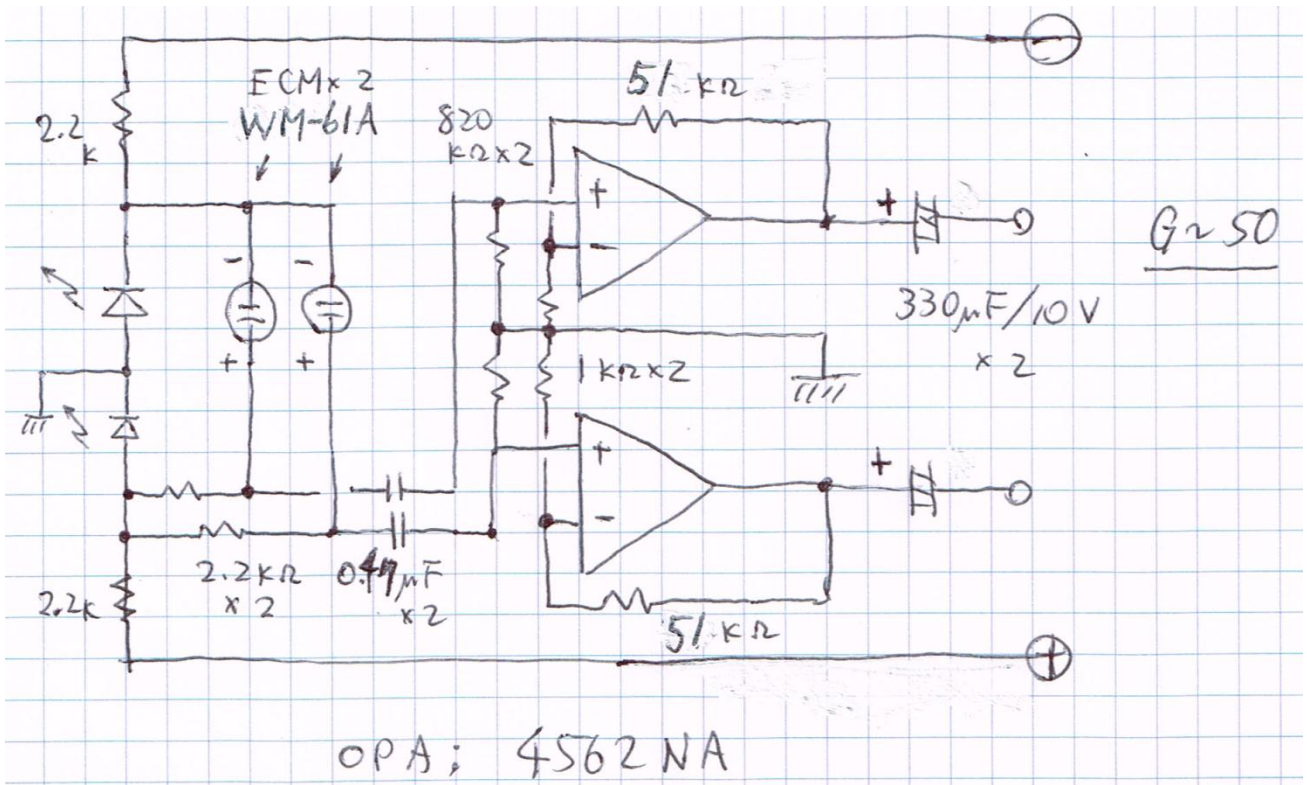 −
ECM×2
WM-61A
2.2
k
820
kΩ×2
51 kΩ
+
−
+
G~50
330μF/10V
×2
−
−
+
+
1kΩ×2
+
−
+
2.2kΩ
×2
0.47μF
×2
2.2k
51 kΩ
+
OPA; 4562NA